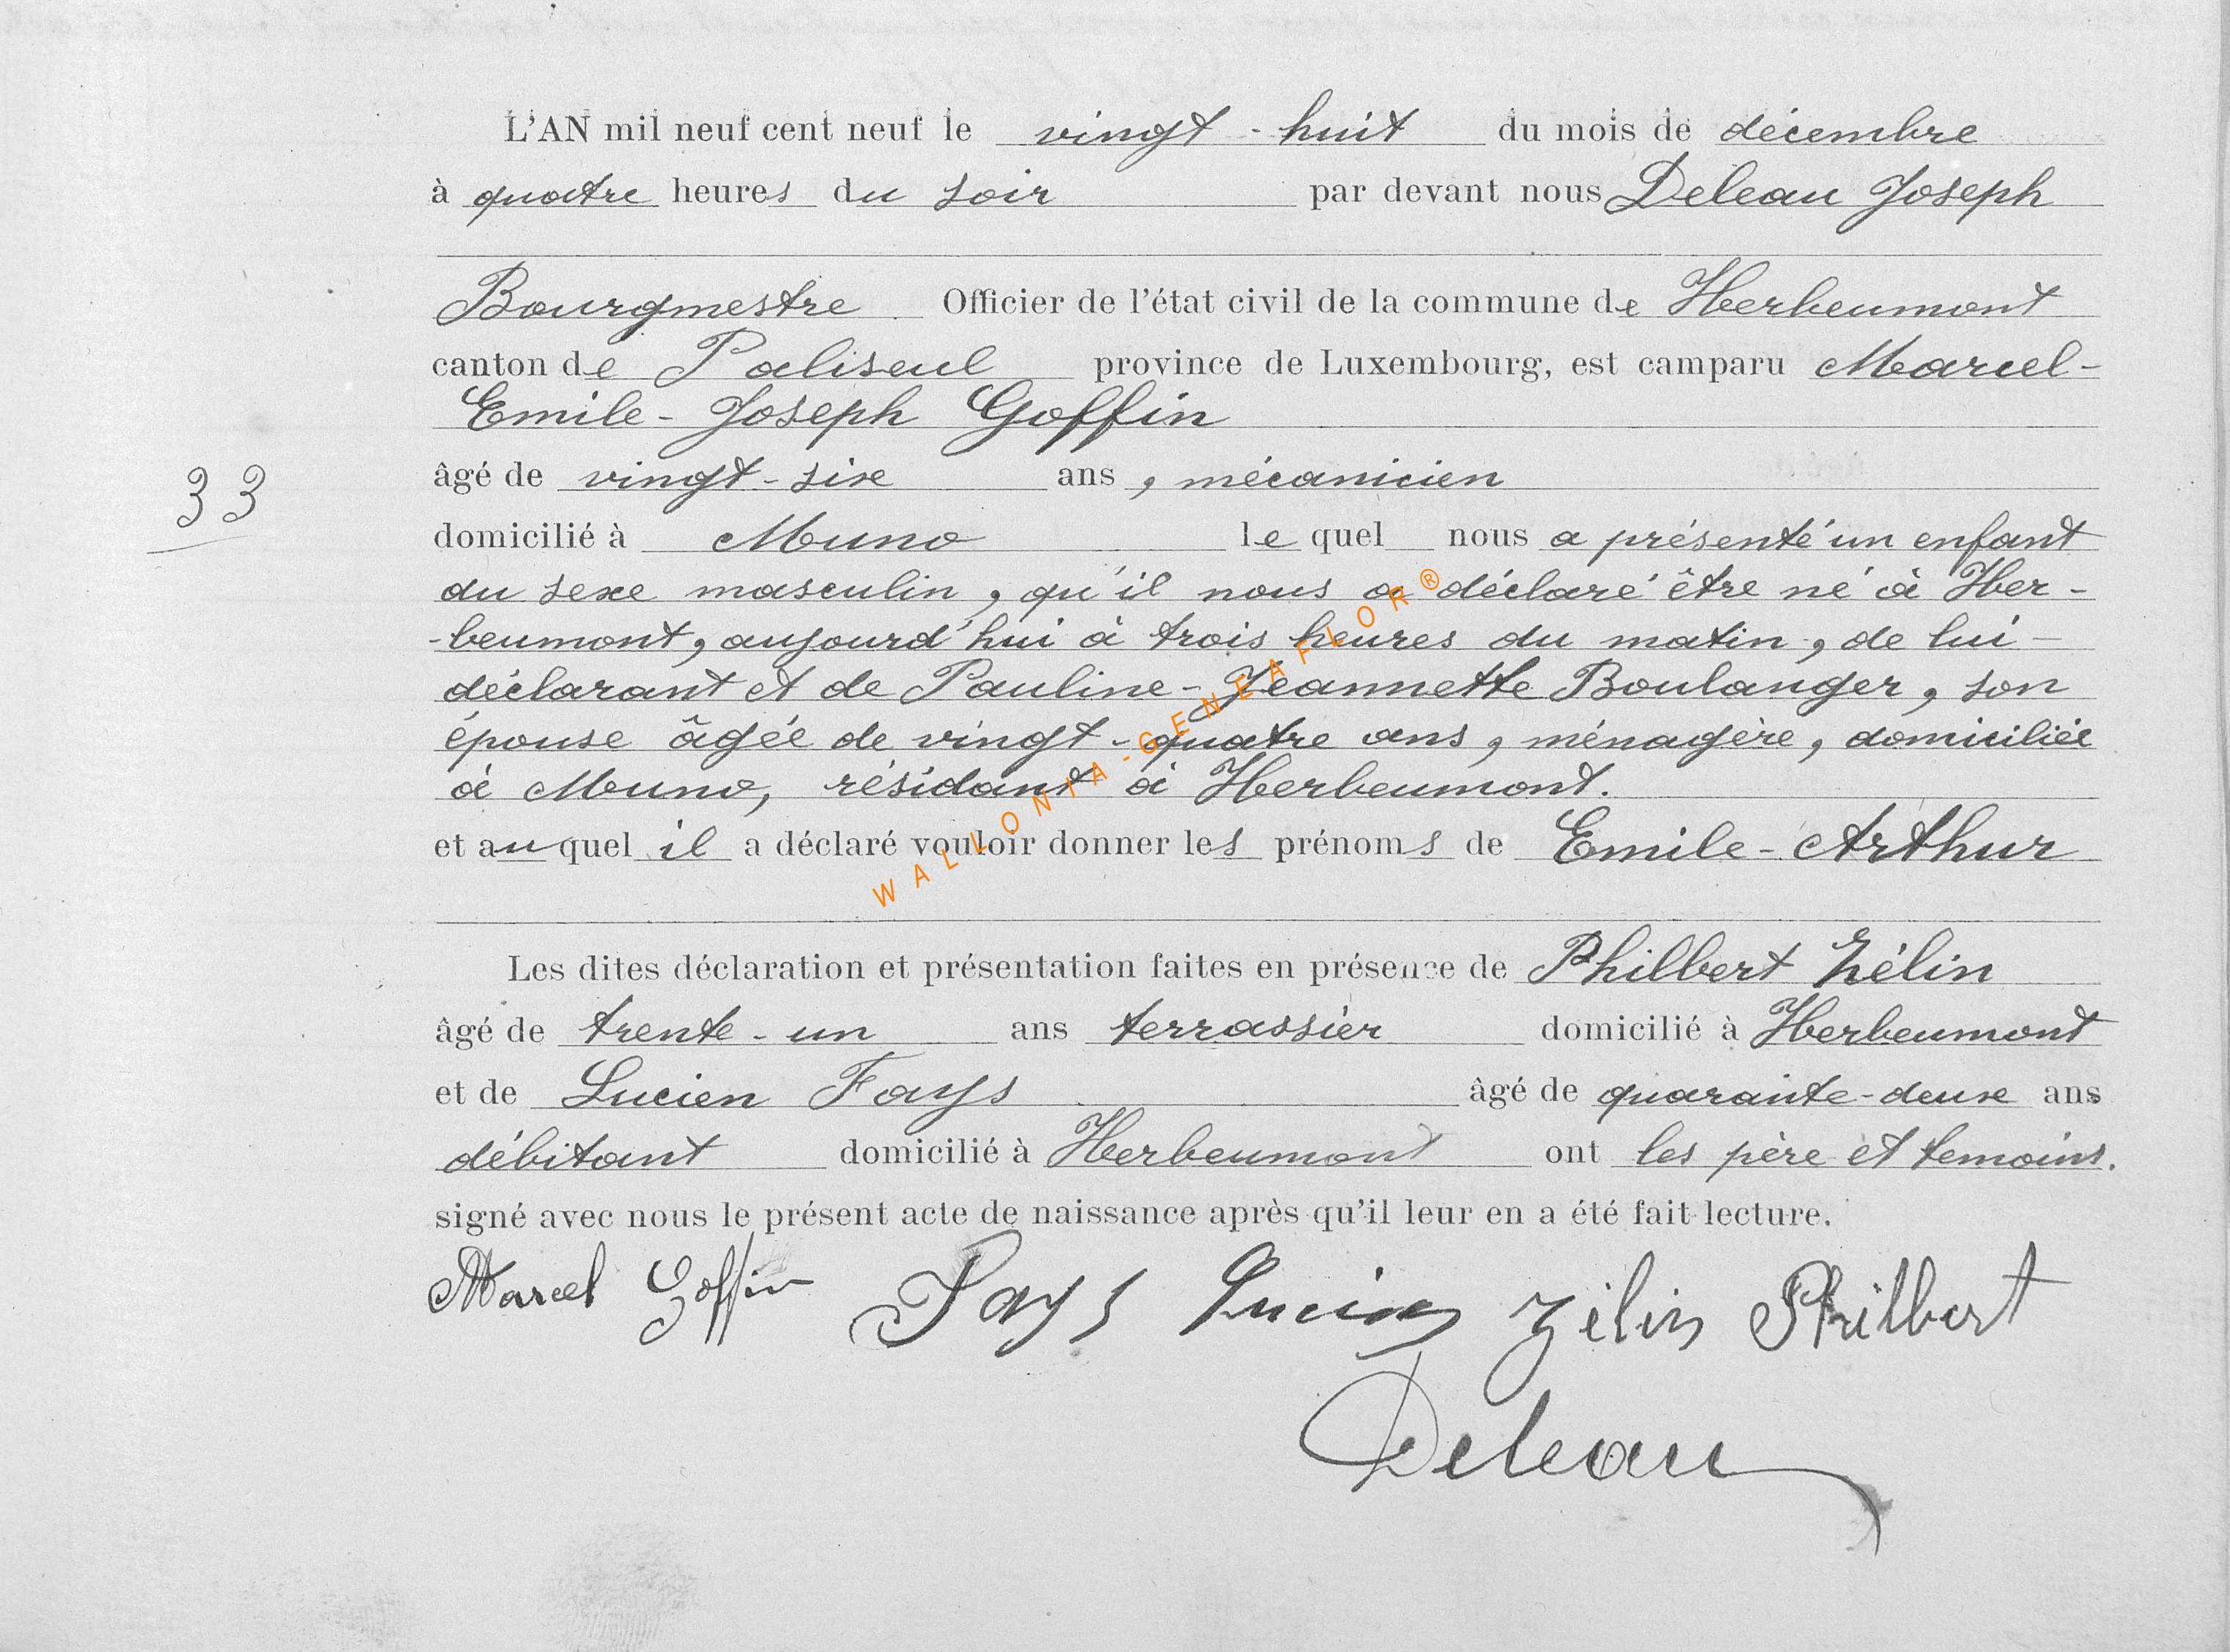 L'AN mil neuf cent neuf le vingt-huit du mois de décembre
à quatre heures du soir par devant nous Deleau Joseph
Bourgmestre Officier de l'état civil de la commune de Herbeumont
canton de Paliseul province de Luxembourg, est camparu Marcel-
Emile-Joseph Goffin
33
âgé de vingt-six ans, mécanicien
domicilié à Muno le quel nous a présenté un enfant
du sexe masculin, qu'il nous a déclaré être né à Her-
-beumont, aujourd'hui à trois heures du matin, de lui-
déclarant et de Pauline-Jeannette Boulanger, son
épouse âgée de vingt-quatre ans, ménagère, domiciliée
à Muno, résidant à Herbeumont.
et au quel il a déclaré vouloir donner les prénoms de Emile-Arthur
WALLONIA-GENEAFLOR®
Les dites déclaration et présentation faites en présence de Philbert Zélin
âgé de trente-un ans terrassier domicilié à Herbeumont
et de Lucien Fays âgé de quarante-deux ans
débitant domicilié à Herbeumont ont les père et temoins.
signé avec nous le présent acte de naissance après qu'il leur en a été fait lecture.
Marcel Goffin Fays Lucien Zélin Philbert
Deleau